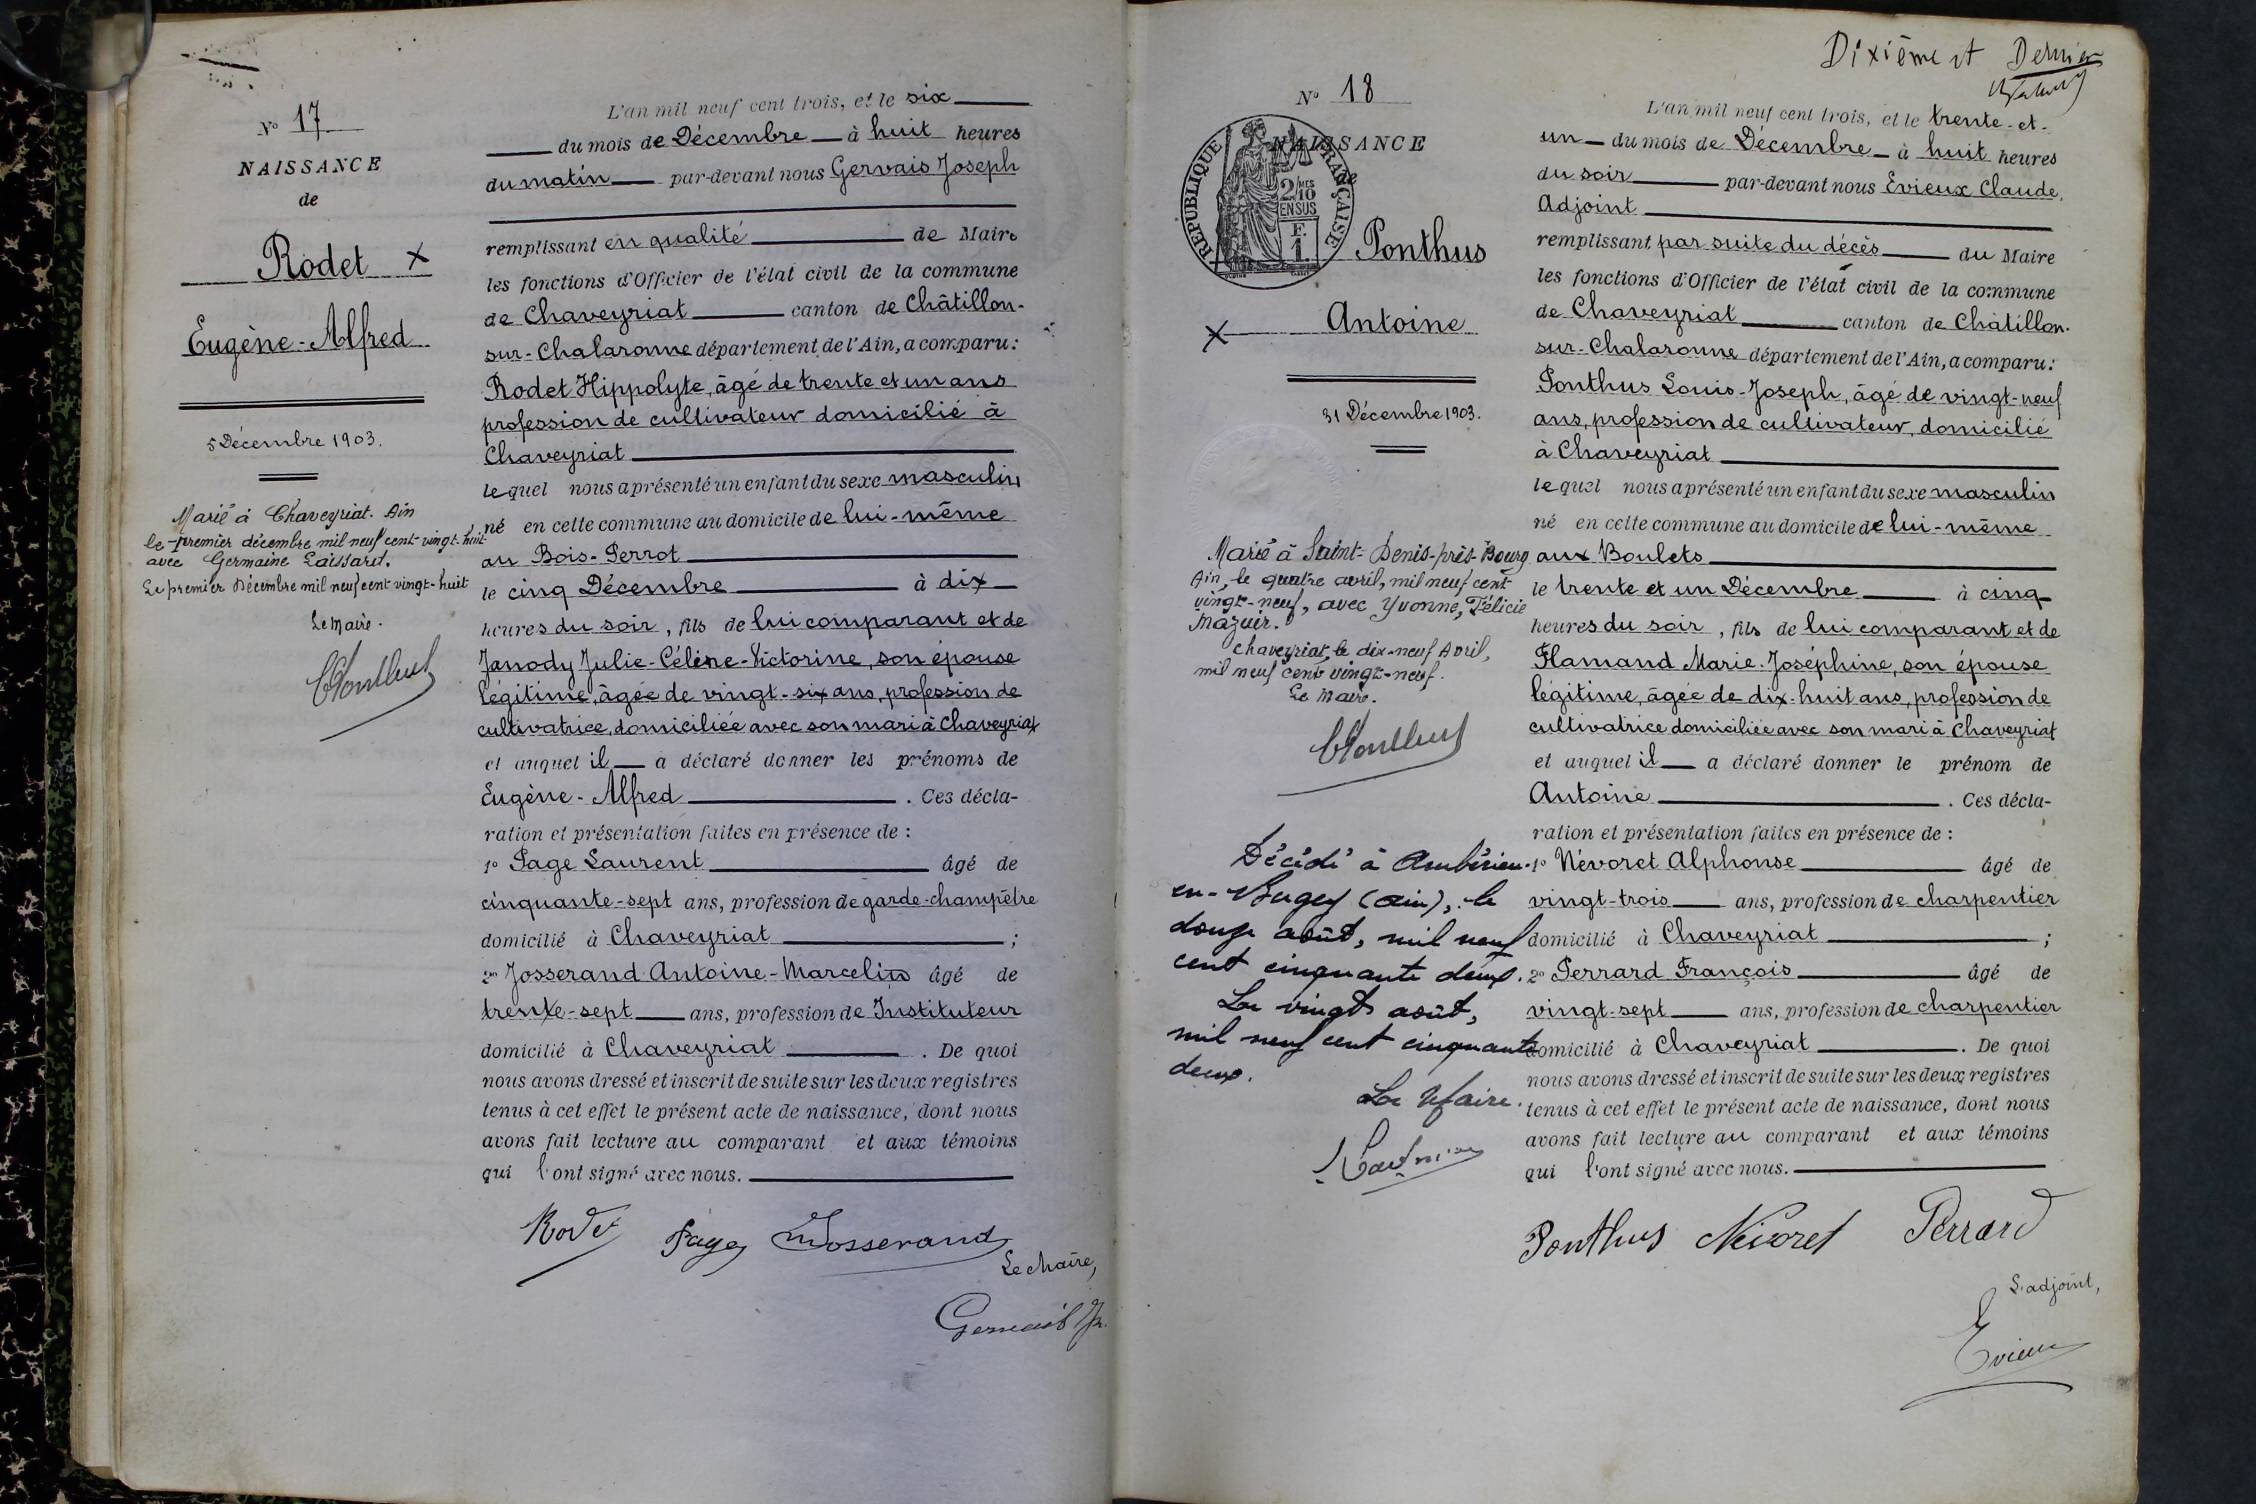 N° 17
NAISSANCE
de
Rodet X
Eugène-Alfred
5 Décembre 1903.
Marié à Chaveyriat. Ain
le premier décembre mil neuf cent vingt-huit
avec Germaine Laissard.
Le premier Décembre mil neuf cent vingt-huit
Le Maire.
CPonthus
L'an mil neuf cent trois, et le six
du mois de Décembre à huit heures
du matin par-devant nous Gervais Joseph
remplissant en qualité de Maire
les fonctions d'Officier de l'état civil de la commune
de Chaveyriat canton de Châtillon-
sur-Chalaronne département de l'Ain, a comparu :
Rodet Hippolyte, âgé de trente et un ans
profession de cultivateur domicilié à
Chaveyriat
lequel nous a présenté un enfant du sexe masculin
né en cette commune au domicile de lui-même
au Bois-Perrot
le cinq Décembre à dix
heures du soir, fils de lui comparant et de
Janody Julie-Célène-Victorine, son épouse
légitime, âgée de vingt-six ans, profession de
cultivatrice, domiciliée avec son mari à Chaveyriat
et auquel il a déclaré donner les prénoms de
Eugène-Alfred . Ces décla-
ration et présentation faites en présence de :
1° Page Laurent âgé de
cinquante-sept ans, profession de garde-champêtre
domicilié à Chaveyriat ;
2° Josserand Antoine-Marcelin âgé de
trente-sept ans, profession de Instituteur
domicilié à Chaveyriat . De quoi
nous avons dressé et inscrit de suite sur les deux registres
tenus à cet effet le présent acte de naissance, dont nous
avons fait lecture au comparant et aux témoins
qui l'ont signé avec nous.
Rodet Page Josserand
Le Maire,
Gervais Jh.
Dixième et Dernier
N° 18
NAISSANCE
de
RÉPUBLIQUE FRANÇAISE
2/10
MES
EN SUS
F.
1.
Ponthus
X Antoine
31 Décembre 1903.
Marié à Saint-Denis-près-Bourg
Ain, le quatre avril, mil neuf cent
vingt-neuf, avec Yvonne, Félicie
Mazuir.
Chaveyriat, le dix-neuf Avril,
mil neuf cent vingt-neuf.
Le Maire.
CPonthus
Décédé à Ambérieu-
en-Bugey (Ain), le
douze août, mil neuf
cent cinquante deux.
Le vingt août,
mil neuf cent cinquante
deux.
Le Maire.
L'an mil neuf cent trois, et le trente-et-
un du mois de Décembre à huit heures
du soir par-devant nous Evieux Claude,
Adjoint
remplissant par suite du décès du Maire
les fonctions d'Officier de l'état civil de la commune
de Chaveyriat canton de Châtillon-
sur-Chalaronne département de l'Ain, a comparu :
Ponthus Louis-Joseph, âgé de vingt-neuf
ans, profession de cultivateur, domicilié
à Chaveyriat
lequel nous a présenté un enfant du sexe masculin
né en cette commune au domicile de lui-même
aux Boulets
le trente et un Décembre à cinq
heures du soir, fils de lui comparant et de
Flamand Marie-Joséphine, son épouse
légitime, âgée de dix-huit ans, profession de
cultivatrice domiciliée avec son mari à Chaveyriat
et auquel il a déclaré donner le prénom de
Antoine . Ces décla-
ration et présentation faites en présence de :
1° Névoret Alphonse âgé de
vingt-trois ans, profession de charpentier
domicilié à Chaveyriat ;
2° Perrard François âgé de
vingt-sept ans, profession de charpentier
domicilié à Chaveyriat . De quoi
nous avons dressé et inscrit de suite sur les deux registres
tenus à cet effet le présent acte de naissance, dont nous
avons fait lecture au comparant et aux témoins
qui l'ont signé avec nous.
Ponthus Névoret Perrard
L'adjoint,
Evieux